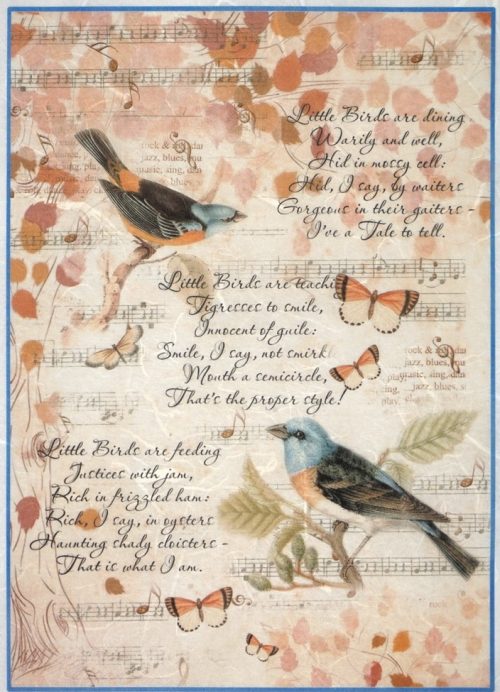 Little Birds are dining
Warily and well,
Hid in mossy cell:
Hid, I say, by waiters
Gorgeous in their gaiters -
I've a Tale to tell.
Little Birds are teachi
Tigresses to smile,
Innocent of guile:
Smile, I say, not smirk
Mouth a semicircle,
That's the proper style!
Little Birds are feeding
Justices with jam,
Rich in frizzled ham:
Rich, I say, in oysters
Haunting shady cloisters -
That is what I am.
rock &
jazz, blues,
music, sing, dan
blues
sing, play
rock &
play, music, sing, dan
jazz, blues,
sing,
play
rock